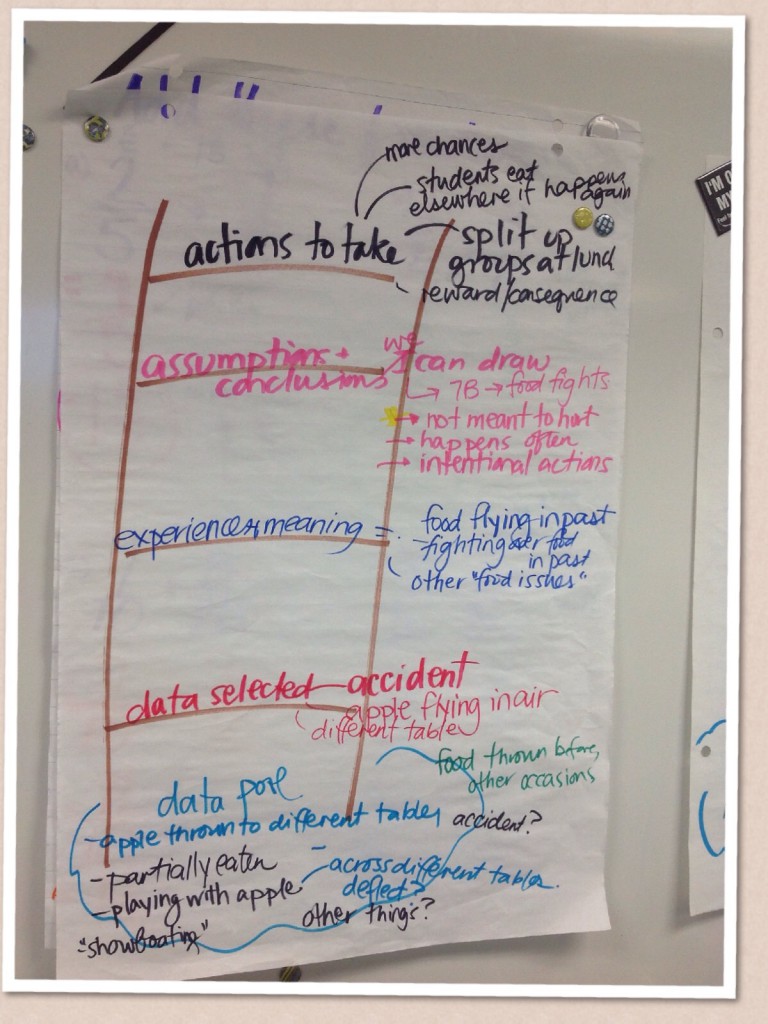 more chances
students eat
elsewhere if happens
again
actions to take
split up
groups at lunc
reward/consequence
assumptions +
conclusions
we
can draw
→ 7B → food fights
→ not meant to hurt
→ happens often
→ intentional actions
experiences + meaning =
food flying in past
- fighting over food
in past
other "food issues"
data selected — accident
apple flying in air
different tables
food thrown before,
other occasions
data pool
- apple thrown to different tables
accident?
- partially eaten
- across different tables.
deflect?
- playing with apple
other things?
"showboating"
I'M
MY